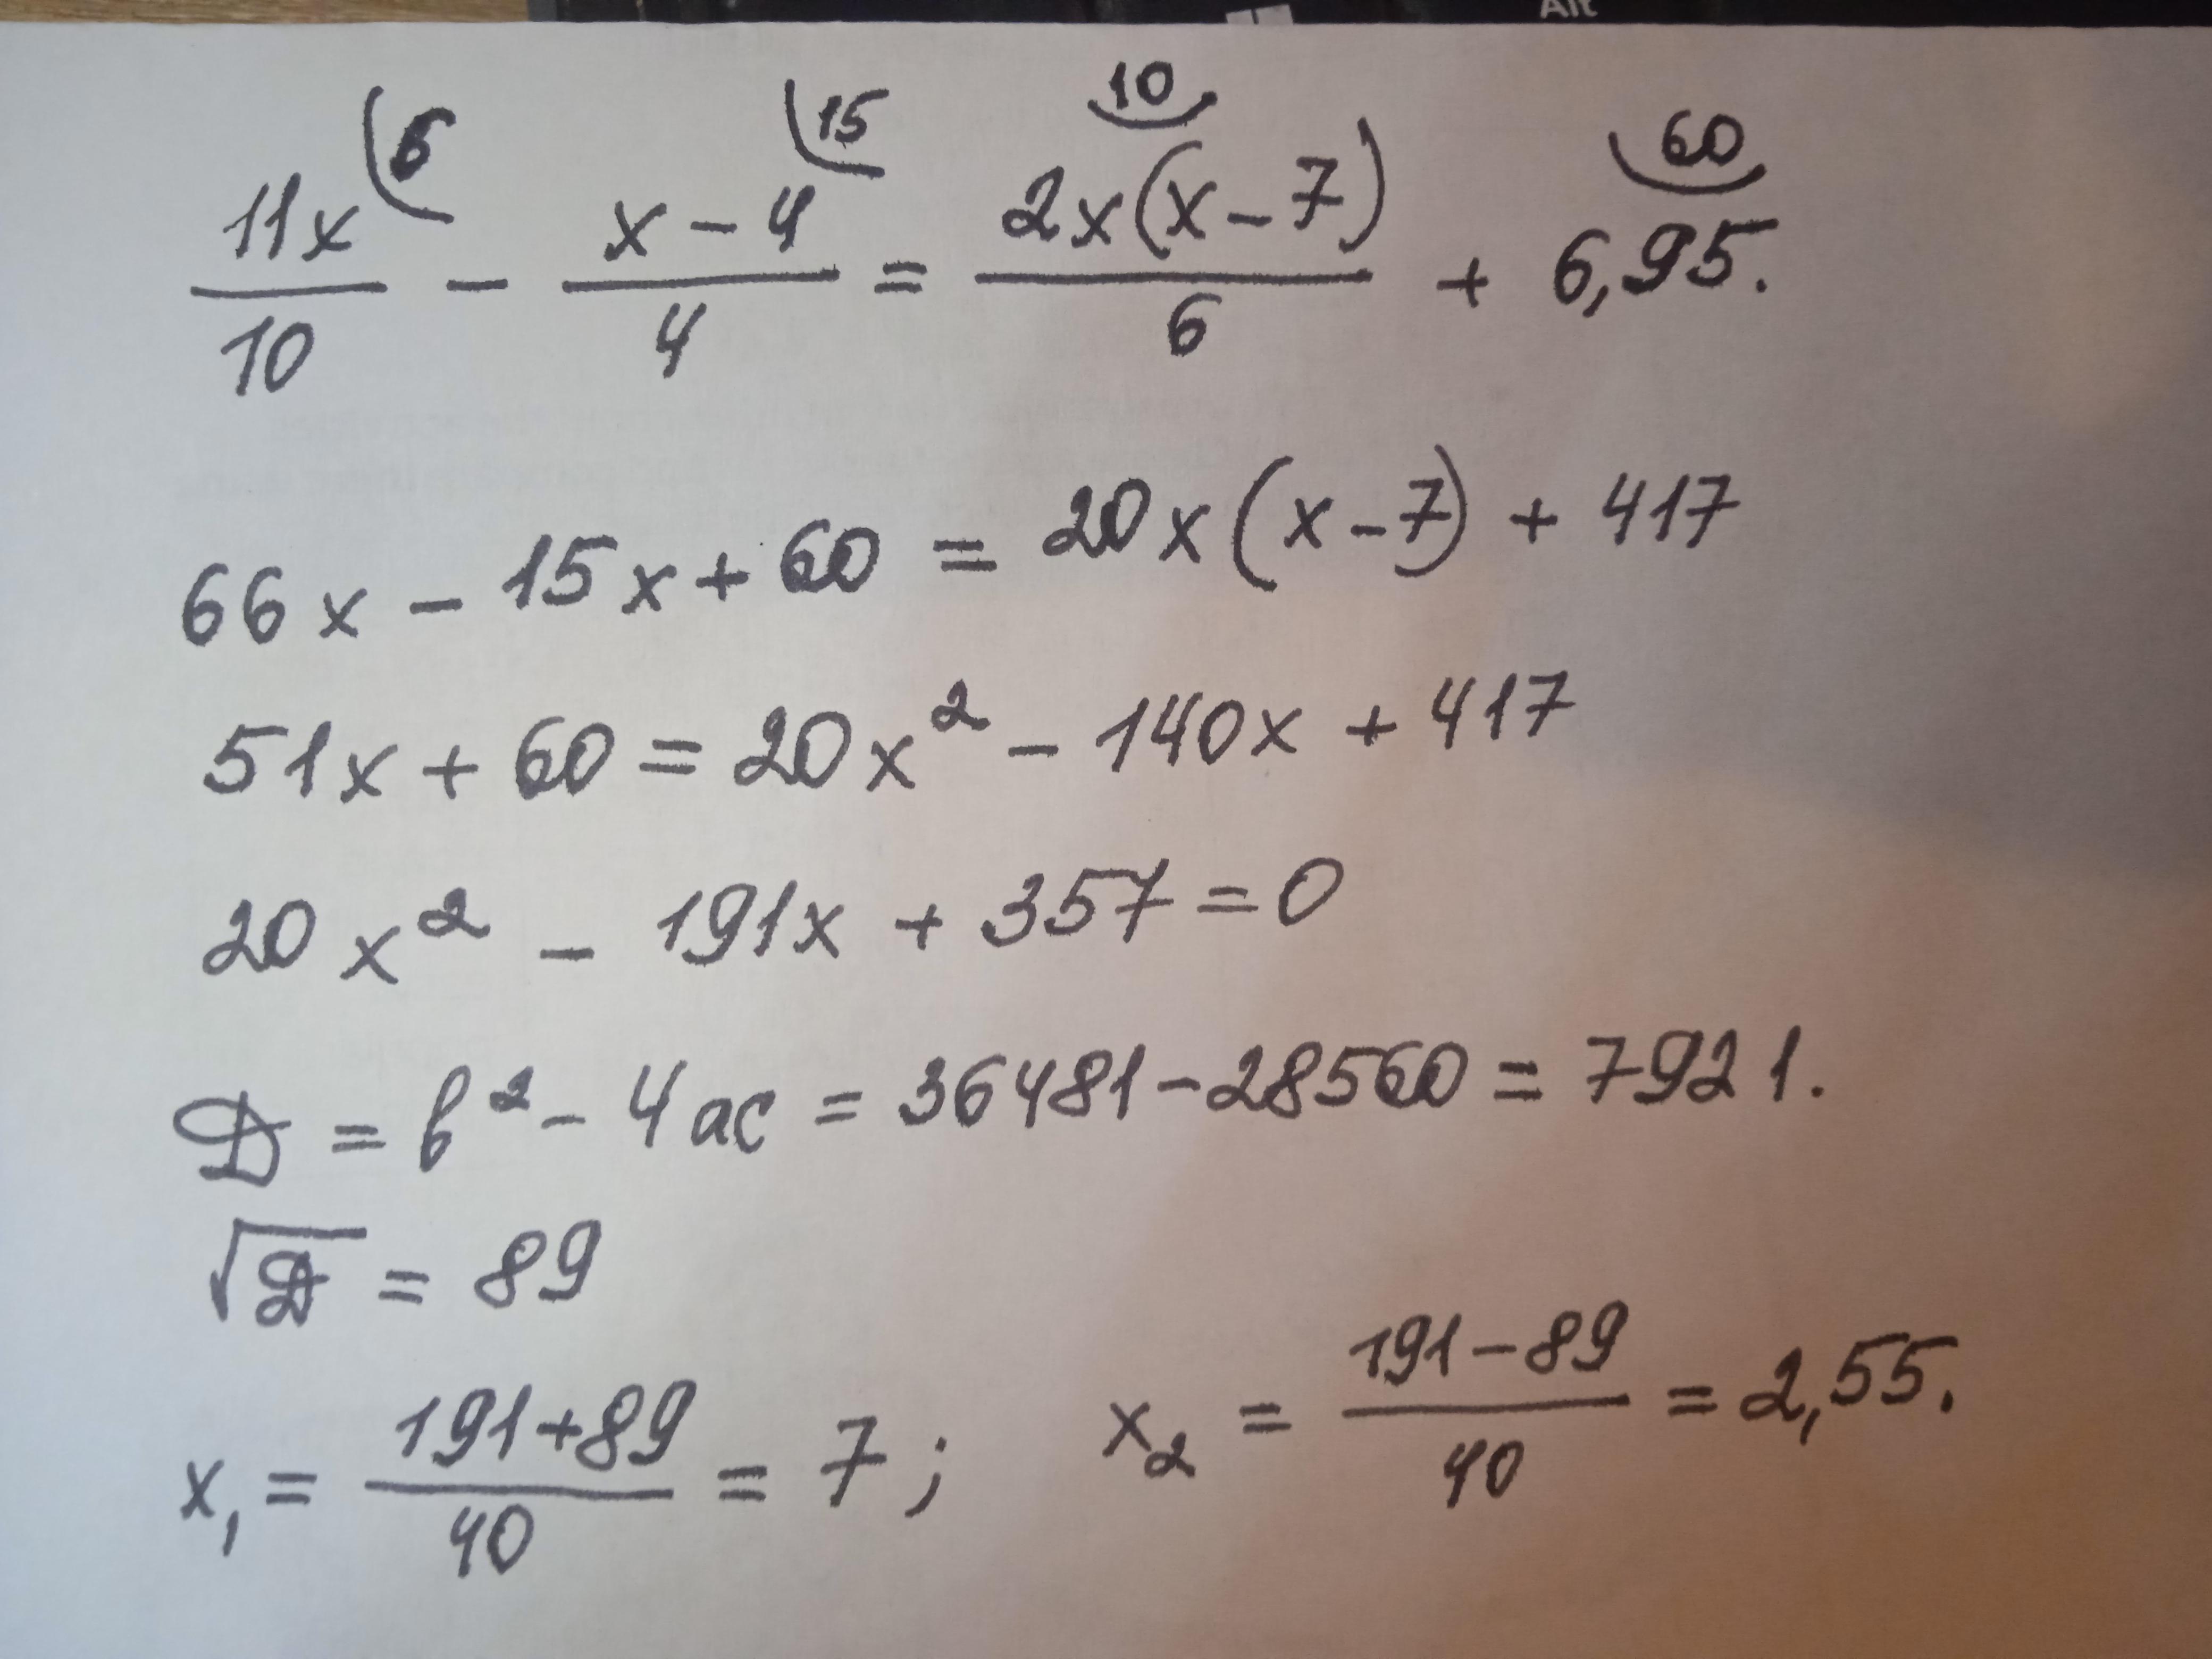 Alt
11x/10 (6 − (x − 4)/4 (15 = 2x(x − 7)/6 (10 + 6,95. (60
66x − 15x + 60 = 20x(x − 7) + 417
51x + 60 = 20x² − 140x + 417
20x² − 191x + 357 = 0
D = b² − 4ac = 36481 − 28560 = 7921.
√D = 89
x₁ = (191 + 89)/40 = 7; x₂ = (191 − 89)/40 = 2,55.